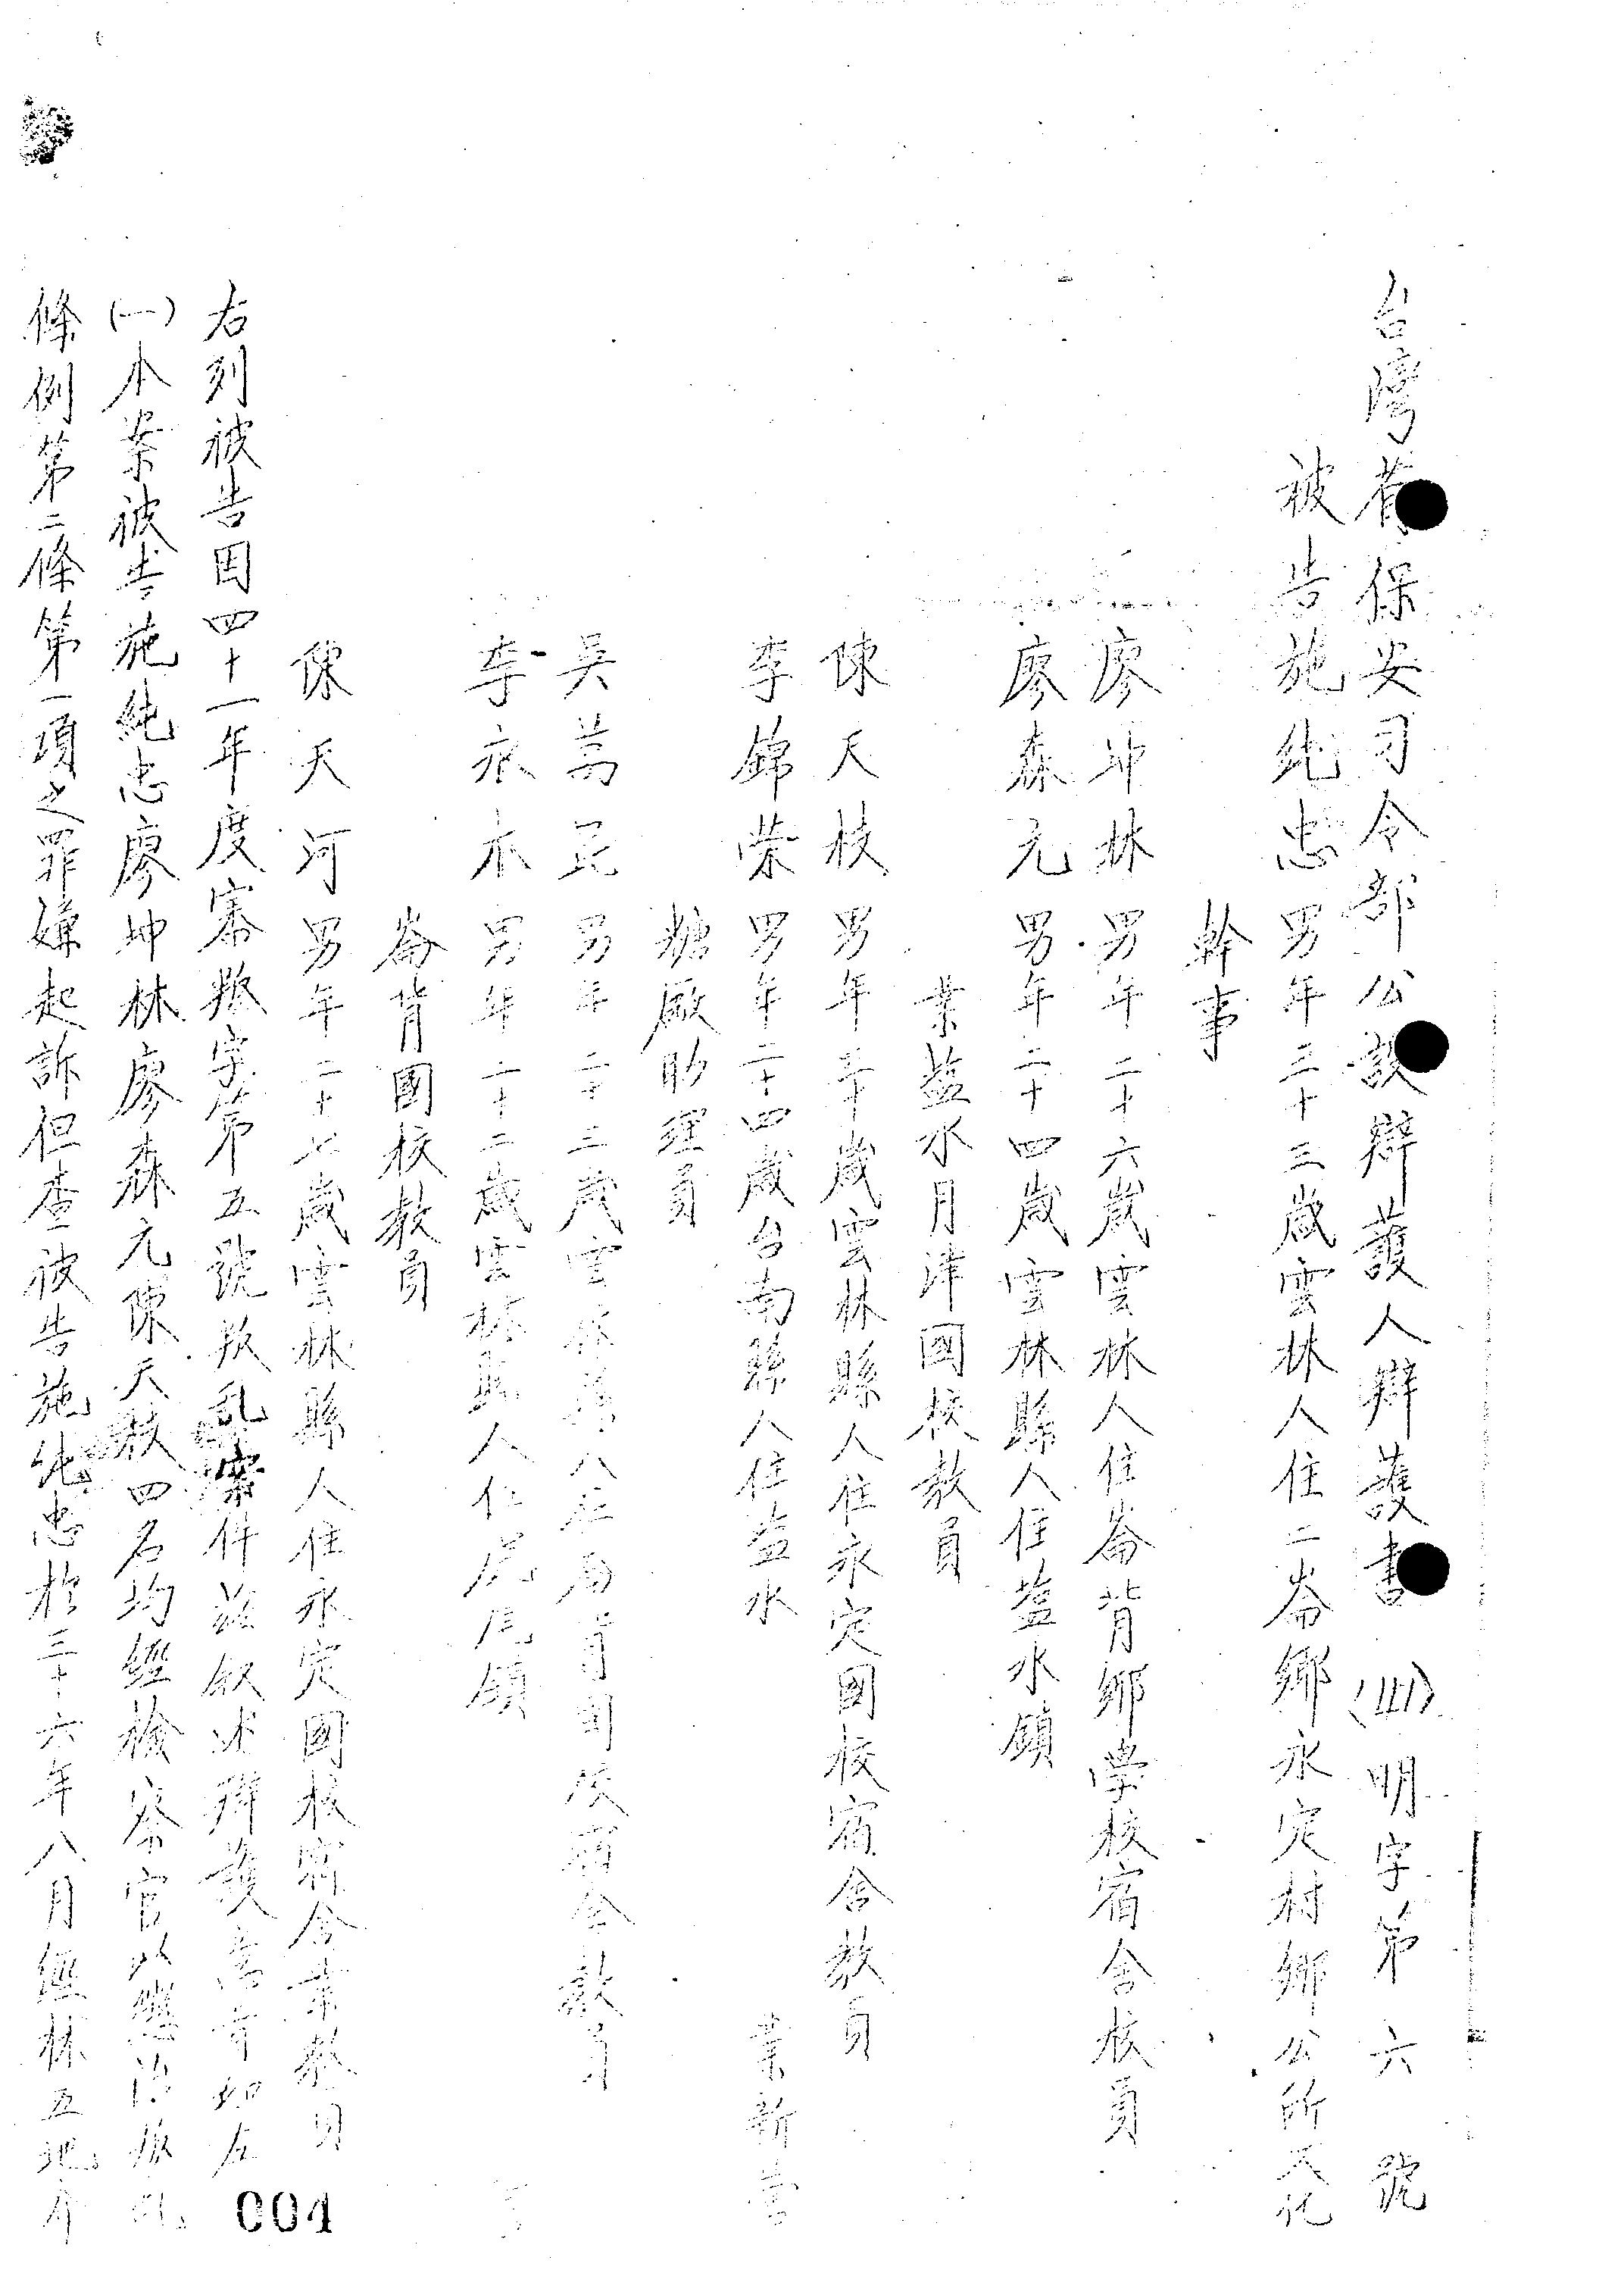 台灣省保安司令部公設辯護人辯護書(41)明字第六號
被告施純忠男年三十三歲雲林人住二崙鄉永定村鄉公所文化
幹事
廖坤林男年二十六歲雲林人住崙背鄉學校宿舍校員
廖森元男年二十四歲雲林縣人住盐水鎮
業盐水月津國校教員
陳天枝男年三十歲雲林縣人住永定國校宿舍教員
李錦荣男年二十四歲台南縣人住盐水 業新营
糖廠助理員
吳萬 男年二十三歲雲林縣人住崙背國校宿舍教員
李 木男年二十二歲雲林縣人住虎尾鎮
崙背國校教員
陳天河男年二十七歲雲林縣人住永定國校宿舍業教員
右列被告因四十一年度審叛字第五號叛乱案件茲叙述辯護意旨如左
(一)本案被告施純忠廖坤林廖森元陳天枝四名均經檢察官以懲治叛乱
條例第二條第一項之罪嫌起訴但查被告施純忠於三十六年八月經林五地介
004